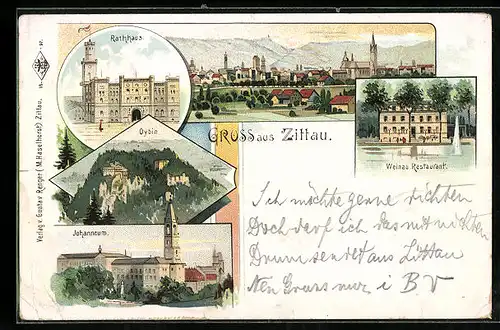 Rathhaus.
GRUSS aus Zittau.
Oybin
Weinau Restaurant.
Johanneum.
Verlag v. Gustav Renger (M. Haselhorst) Zittau.
Ich möchte gerne dichten
Doch darf ich das mit nichten
Drum sendet aus Zittau
Nen Gruss nur i B V